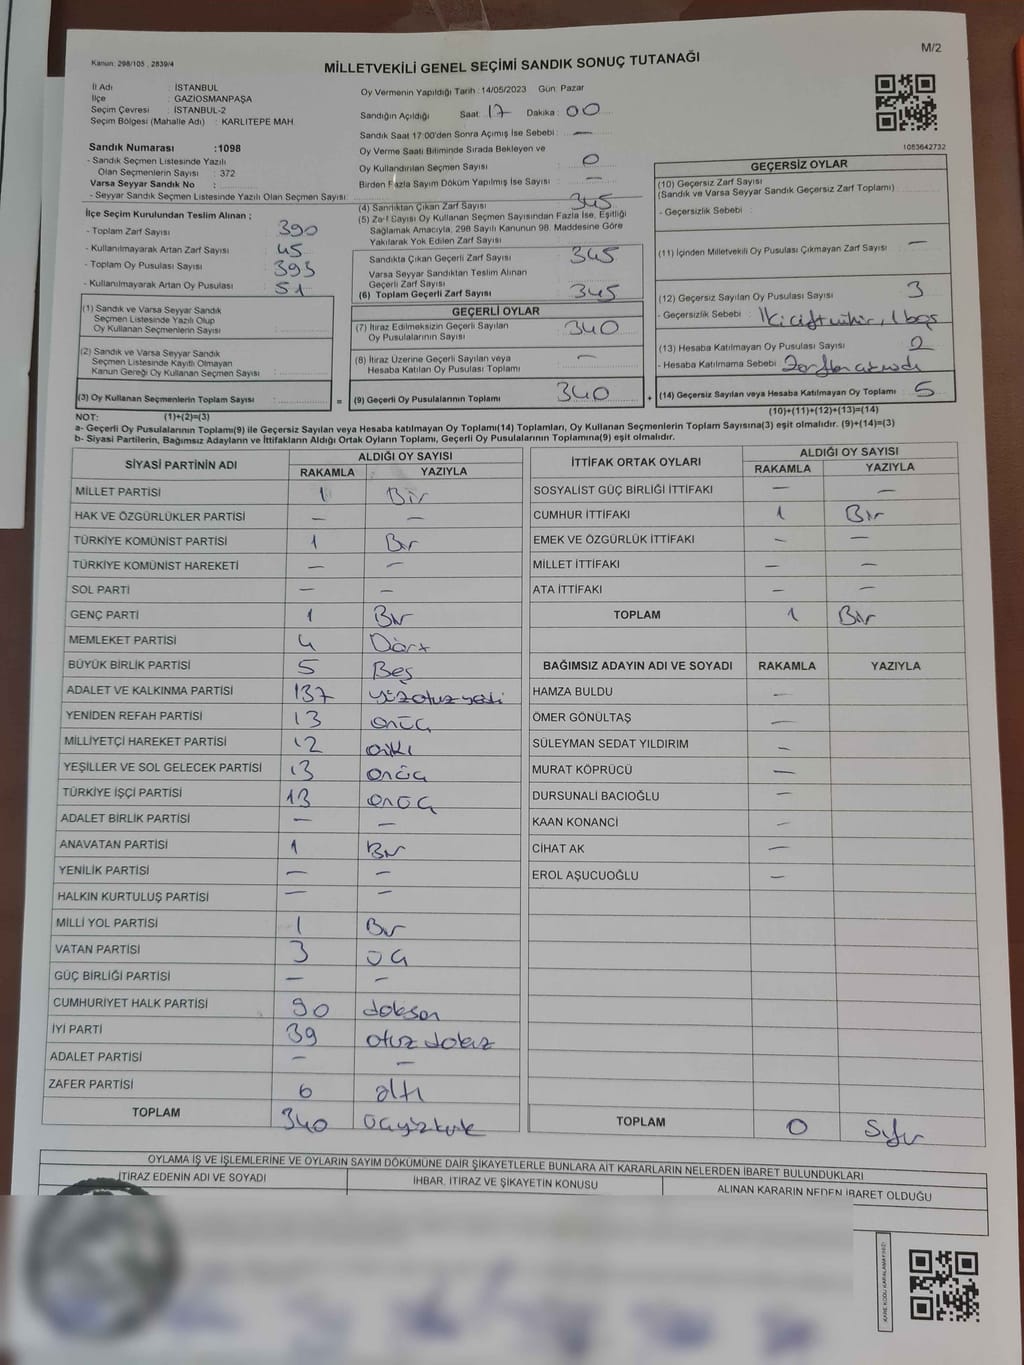 M/2
Kanun: 298/105 , 2839/4
MİLLETVEKİLİ GENEL SEÇİMİ SANDIK SONUÇ TUTANAĞI
İl Adı : İSTANBUL
İlçe : GAZİOSMANPAŞA
Seçim Çevresi : İSTANBUL-2
Seçim Bölgesi (Mahalle Adı) : KARLITEPE MAH.
Sandık Numarası :1098
- Sandık Seçmen Listesinde Yazılı
Olan Seçmenlerin Sayısı : 372
Varsa Seyyar Sandık No :
- Seyyar Sandık Seçmen Listesinde Yazılı Olan Seçmen Sayısı
Oy Vermenin Yapıldığı Tarih : 14/05/2023 Gün: Pazar
Sandığın Açıldığı Saat: 17 Dakika: 00
Sandık Saat 17:00'den Sonra Açımış İse Sebebi : —
Oy Verme Saati Bitiminde Sırada Bekleyen ve
Oy Kullandırılan Seçmen Sayısı : 0
Birden Fazla Sayım Döküm Yapılmış İse Sayısı : —
1083642732
İlçe Seçim Kurulundan Teslim Alınan ;
- Toplam Zarf Sayısı : 390
- Kullanılmayarak Artan Zarf Sayısı : 45
- Toplam Oy Pusulası Sayısı : 393
- Kullanılmayarak Artan Oy Pusulası : 51
(1) Sandık ve Varsa Seyyar Sandık
Seçmen Listesinde Yazılı Olup
Oy Kullanan Seçmenlerin Sayısı :
(2) Sandık ve Varsa Seyyar Sandık
Seçmen Listesinde Kayıtlı Olmayan
Kanun Gereği Oy Kullanan Seçmen Sayısı :
(3) Oy Kullanan Seçmenlerin Toplam Sayısı :
(1)+(2)=(3)
(4) Sandıktan Çıkan Zarf Sayısı : 345
(5) Zarf Sayısı Oy Kullanan Seçmen Sayısından Fazla İse, Eşitliği
Sağlamak Amacıyla, 298 Sayılı Kanunun 98. Maddesine Göre
Yakılarak Yok Edilen Zarf Sayısı
Sandıkta Çıkan Geçerli Zarf Sayısı : 345
Varsa Seyyar Sandıktan Teslim Alınan
Geçerli Zarf Sayısı
(6) Toplam Geçerli Zarf Sayısı : 345
GEÇERLİ OYLAR
(7) İtiraz Edilmeksizin Geçerli Sayılan
Oy Pusulalarının Sayısı : 340
(8) İtiraz Üzerine Geçerli Sayılan veya
Hesaba Katılan Oy Pusulası Toplamı : —
= (9) Geçerli Oy Pusulalarının Toplamı : 340
GEÇERSİZ OYLAR
(10) Geçersiz Zarf Sayısı
(Sandık ve Varsa Seyyar Sandık Geçersiz Zarf Toplamı)
- Geçersizlik Sebebi :
(11) İçinden Milletvekili Oy Pusulası Çıkmayan Zarf Sayısı : —
(12) Geçersiz Sayılan Oy Pusulası Sayısı : 3
- Geçersizlik Sebebi : İki çift mühür, 1 boş
(13) Hesaba Katılmayan Oy Pusulası Sayısı : 2
- Hesaba Katılmama Sebebi :
+ (14) Geçersiz Sayılan veya Hesaba Katılmayan Oy Toplamı : 5
(10)+(11)+(12)+(13)=(14)
NOT:
a- Geçerli Oy Pusulalarının Toplamı(9) ile Geçersiz Sayılan veya Hesaba katılmayan Oy Toplamı(14) Toplamları, Oy Kullanan Seçmenlerin Toplam Sayısına(3) eşit olmalıdır. (9)+(14)=(3)
b- Siyasi Partilerin, Bağımsız Adayların ve İttifakların Aldığı Ortak Oyların Toplamı, Geçerli Oy Pusulalarının Toplamına(9) eşit olmalıdır.
SİYASİ PARTİNİN ADI ALDIĞI OY SAYISI
RAKAMLA YAZIYLA
MİLLET PARTİSİ 1 Bir
HAK VE ÖZGÜRLÜKLER PARTİSİ — —
TÜRKİYE KOMÜNİST PARTİSİ 1 Bir
TÜRKİYE KOMÜNİST HAREKETİ — —
SOL PARTİ — —
GENÇ PARTİ 1 Bir
MEMLEKET PARTİSİ 4 Dört
BÜYÜK BİRLİK PARTİSİ 5 Beş
ADALET VE KALKINMA PARTİSİ 137 yüzotuzyedi
YENİDEN REFAH PARTİSİ 13 onüç
MİLLİYETÇİ HAREKET PARTİSİ 12 oniki
YEŞİLLER VE SOL GELECEK PARTİSİ 13 onüç
TÜRKİYE İŞÇİ PARTİSİ 13 onüç
ADALET BİRLİK PARTİSİ — —
ANAVATAN PARTİSİ 1 Bir
YENİLİK PARTİSİ — —
HALKIN KURTULUŞ PARTİSİ — —
MİLLİ YOL PARTİSİ 1 Bir
VATAN PARTİSİ 3 üç
GÜÇ BİRLİĞİ PARTİSİ — —
CUMHURİYET HALK PARTİSİ 90 doksan
İYİ PARTİ 39 otuz dokuz
ADALET PARTİSİ — —
ZAFER PARTİSİ 6 altı
TOPLAM 340 üçyüzkırk
İTTİFAK ORTAK OYLARI ALDIĞI OY SAYISI
RAKAMLA YAZIYLA
SOSYALİST GÜÇ BİRLİĞİ İTTİFAKI — —
CUMHUR İTTİFAKI 1 Bir
EMEK VE ÖZGÜRLÜK İTTİFAKI — —
MİLLET İTTİFAKI — —
ATA İTTİFAKI — —
TOPLAM 1 Bir
BAĞIMSIZ ADAYIN ADI VE SOYADI RAKAMLA YAZIYLA
HAMZA BULDU —
ÖMER GÖNÜLTAŞ —
SÜLEYMAN SEDAT YILDIRIM —
MURAT KÖPRÜCÜ —
DURSUNALİ BACIOĞLU —
KAAN KONANCİ —
CİHAT AK —
EROL AŞUCUOĞLU —
TOPLAM 0 Sıfır
OYLAMA İŞ VE İŞLEMLERİNE VE OYLARIN SAYIM DÖKÜMÜNE DAİR ŞİKAYETLERLE BUNLARA AİT KARARLARIN NELERDEN İBARET BULUNDUKLARI
İTİRAZ EDENİN ADI VE SOYADI İHBAR, İTİRAZ VE ŞİKAYETİN KONUSU ALINAN KARARIN NEDEN İBARET OLDUĞU